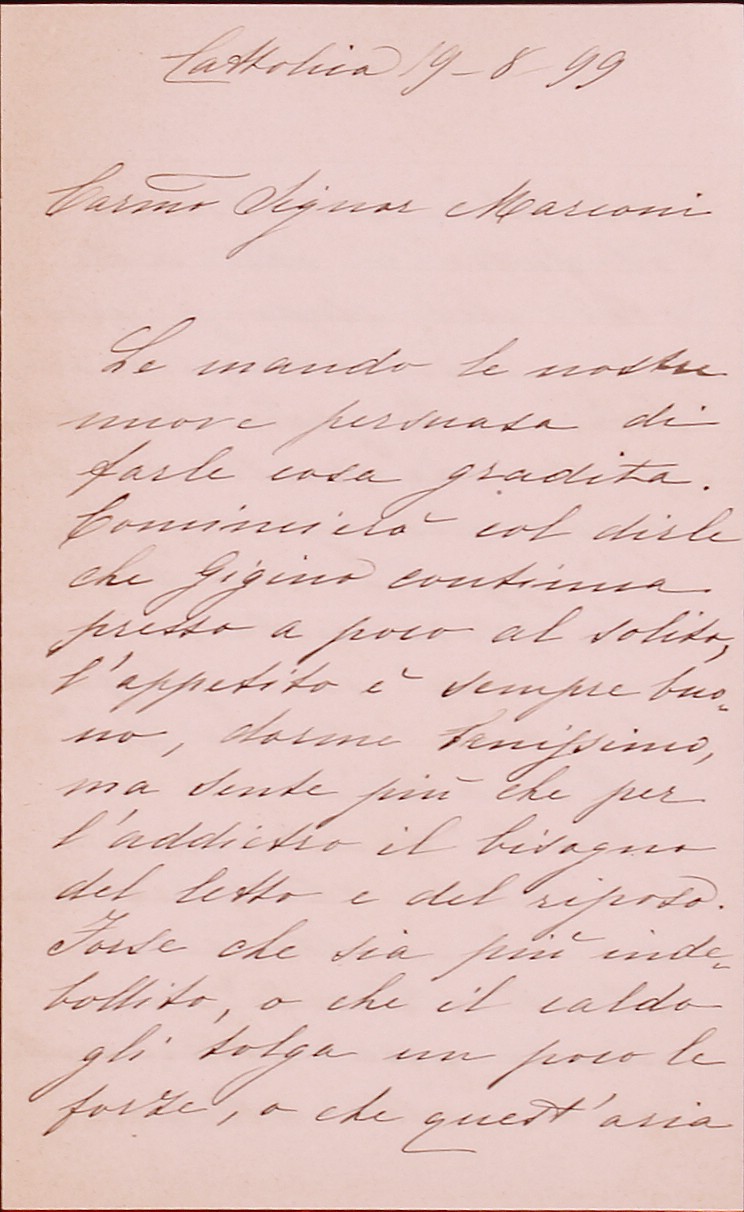 Cattolica 19-8-99
Carmo Signor Marconi
Le mando le nostre
nuove persuasa di
farle cosa gradita.
Comincierò col dirle
che Gigino continua
presso a poco al solito,
l'appetito è sempre buo-
no, dorme benissimo,
ma sente più che per
l'addietro il bisogno
del letto e del riposo.
Forse che sia più inde-
bollito, o che il caldo
gli tolga un poco le
forze, o che quest'aria